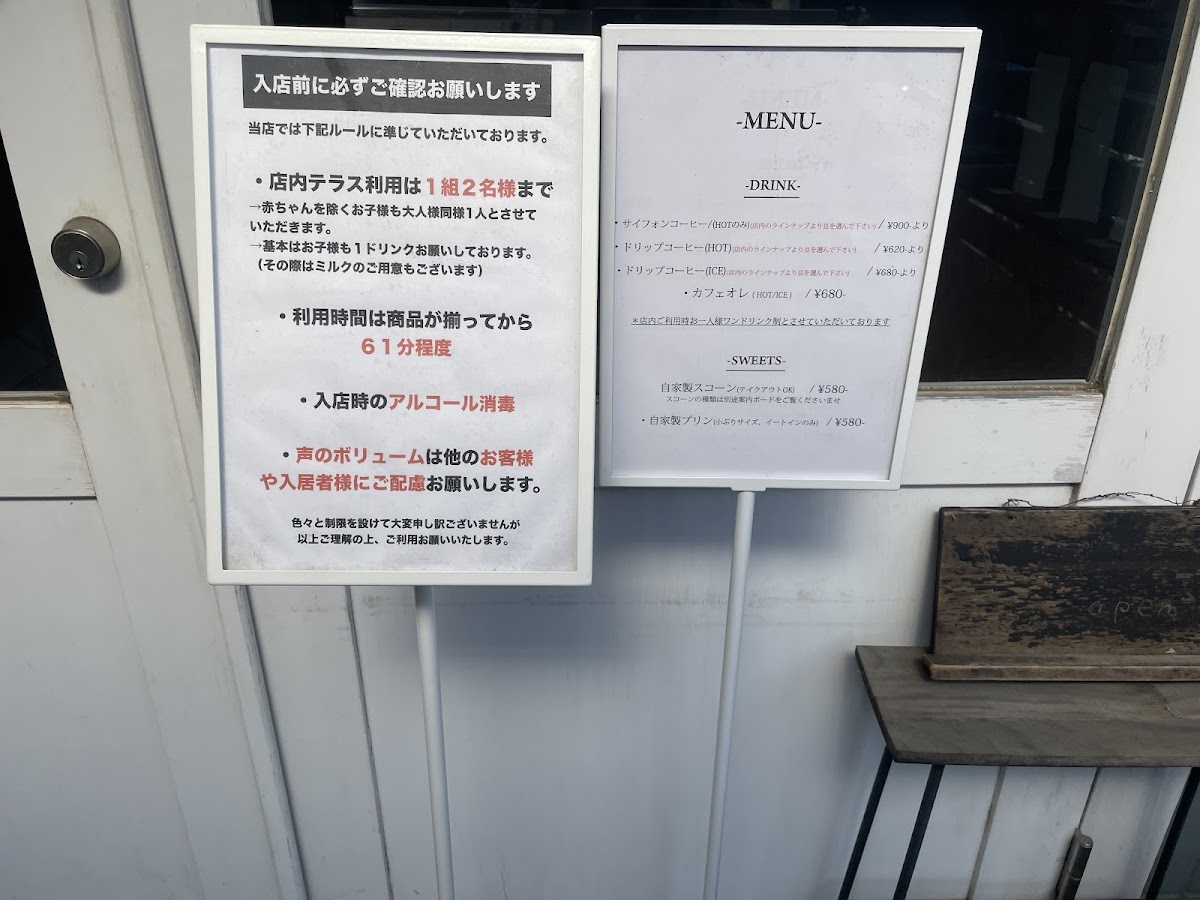 入店前に必ずご確認お願いします
当店では下記ルールに準じていただいております。
・店内テラス利用は1組2名様まで
→赤ちゃんを除くお子様も大人様同様1人とさせて
いただきます。
→基本はお子様も1ドリンクお願いしております。
(その際はミルクのご用意もございます)
・利用時間は商品が揃ってから
61分程度
・入店時のアルコール消毒
・声のボリュームは他のお客様
や入居者様にご配慮お願いします。
色々と制限を設けて大変申し訳ございませんが
以上ご理解の上、ご利用お願いいたします。
-MENU-
-DRINK-
・サイフォンコーヒー/(HOTのみ)(店内のラインナップより豆を選んで下さい) / ¥900-より
・ドリップコーヒー(HOT)(店内のラインナップより豆を選んで下さい) / ¥620-より
・ドリップコーヒー(ICE)(店内のラインナップより豆を選んで下さい) / ¥680-より
・カフェオレ (HOT/ICE) / ¥680-
*店内ご利用時お一人様ワンドリンク制とさせていただいております
-SWEETS-
自家製スコーン(テイクアウトOK) / ¥580-
スコーンの種類は別途案内ボードをご覧くださいませ
・自家製プリン(小ぶりサイズ、イートインのみ) / ¥580-
apen